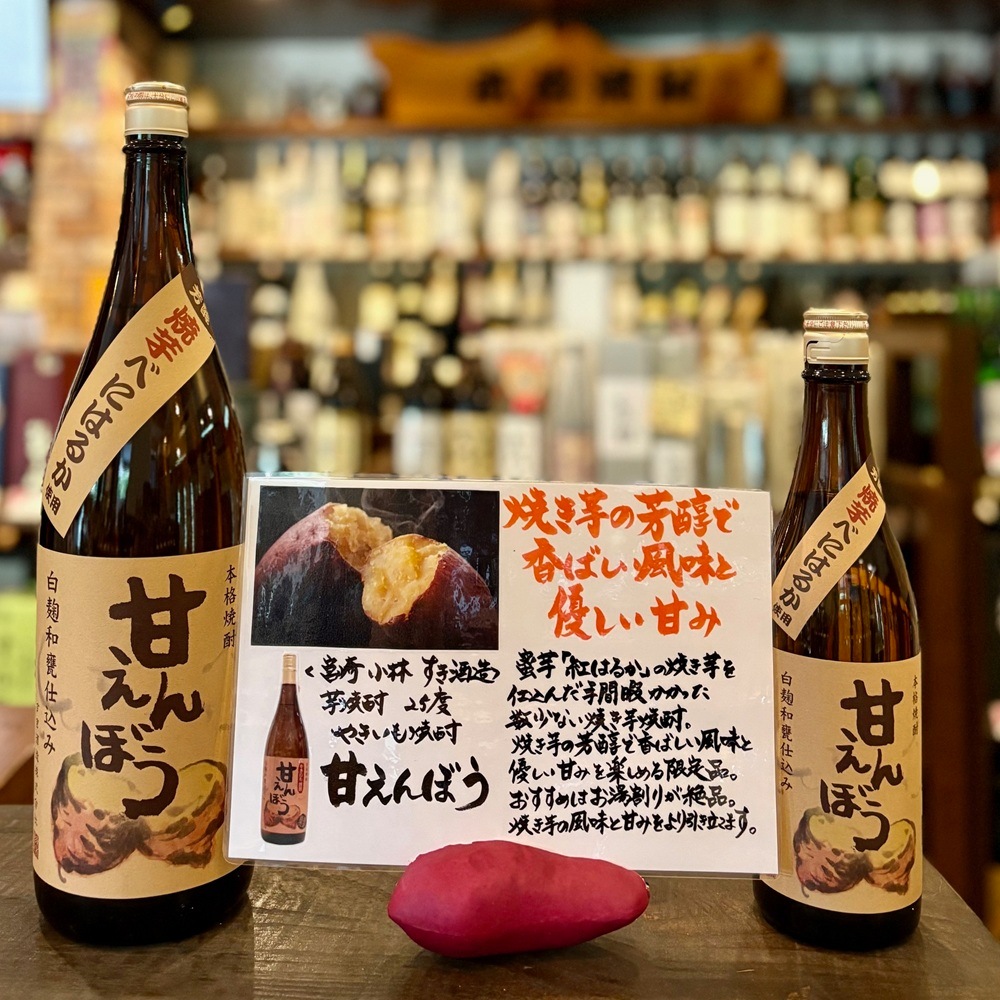 焼芋
べにはるか
使用
本格焼酎
甘えんぼう
白麹和甕仕込み
焼き芋の芳醇で
香ばしい風味と
優しい甘み
<宮崎 小林 すき酒造>
芋焼酎 25度
やきいも焼酎
甘えんぼう
蜜芋「紅はるか」の焼き芋を
仕込んだ手間暇かかった
数少ない焼き芋焼酎。
焼き芋の芳醇で香ばしい風味と
優しい甘みを楽しめる限定品。
おすすめはお湯割りが絶品。
焼き芋の風味と甘みをより引き立てます。
甘えんぼう
焼芋
べにはるか
使用
本格焼酎
甘えんぼう
白麹和甕仕込み